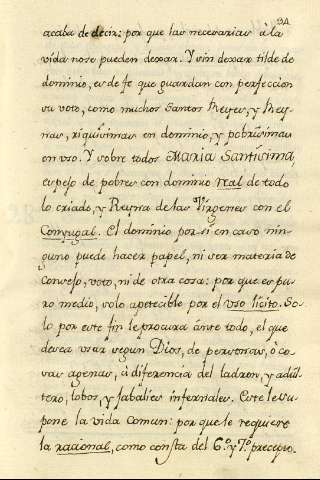 94
acaba de decir: por que las necesarias à la
vida nose pueden dexar. Y sin dexar tilde de
dominio, es de fe que guardan con perfeccion
su voto, como muchos Santos Reyes, y Rey-
nas, riquisimas en dominio, y pobrisimas
en uso. Y sobre todos Maria Santisima,
espejo de pobres con dominio rral de todo
lo criado, y Reyna de las Virgenes con el
Conyugal. El dominio por si en caso nin-
guno puede hacer papel, ni ser materia de
Consejo, voto, ni de otra cosa: por que es pu-
ro medio, solo apetecible por el uso licito. So-
lo por este fin le procura ánte todo, el que
desea usar segun Dios, de personas, ò co-
sas agenas, á diferencia del ladron, y adúl-
tero, lobos, y jabalies infernales. Este le su-
pone la vida comun: por que le requiere
la racional, como consta del 6.º y 7.º precepto.